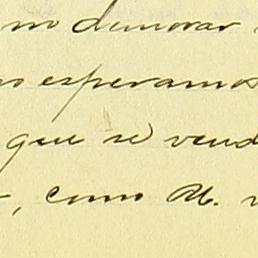 no demorar
esperamos
que se vend
, como M.